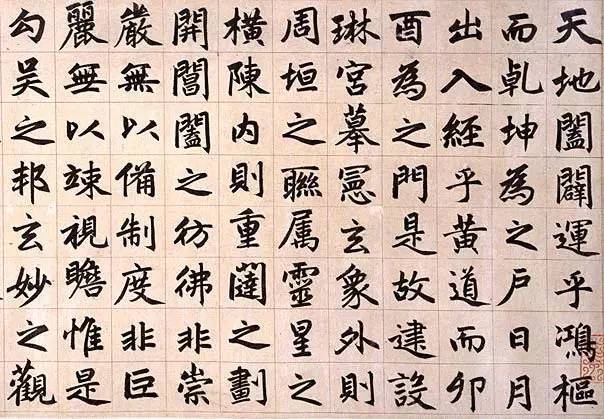 天地闔闢運乎鴻樞
而乹坤為之戶日月
出入經乎黃道而卯
酉為之門是故建設
琳宮摹憲玄象外則
周垣之聮属靈星之
橫陳內則重闥之劃
開閶闔之彷彿非崇
嚴無以備制度非巨
麗無以竦視瞻惟是
勾吳之邦玄妙之觀